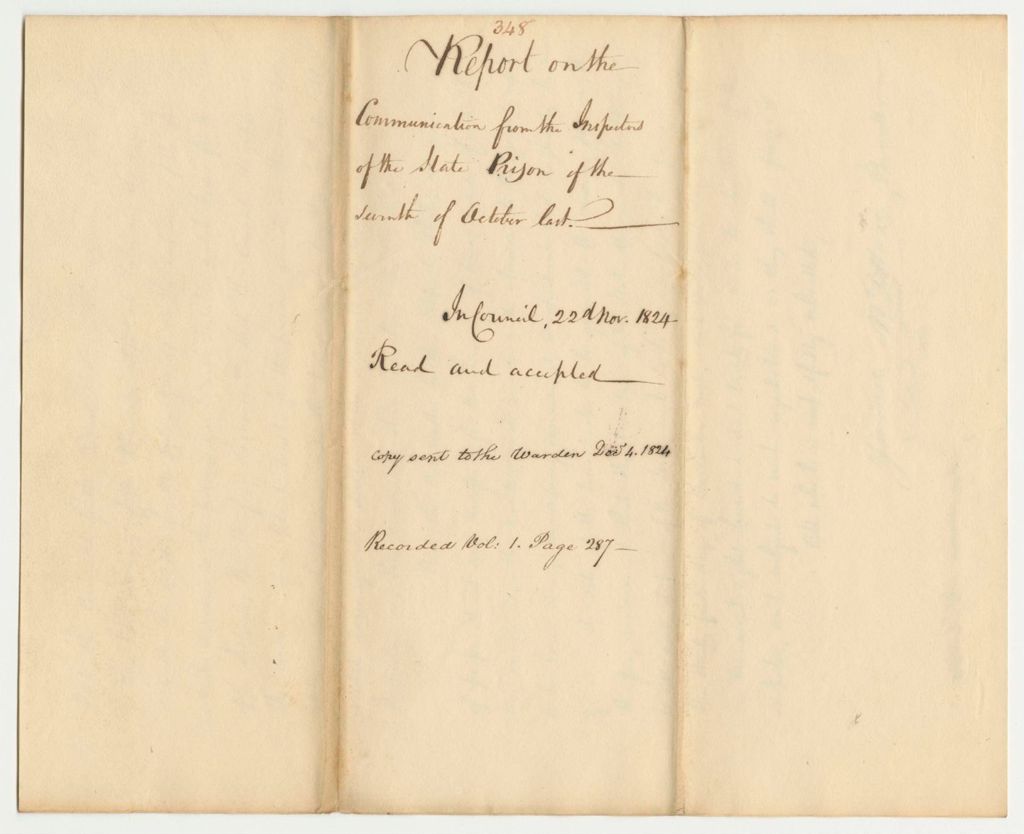 348
Report on the
Communication from the Inspectors
of the State Prison of the
seventh of October last.
In Council, 22d Nov. 1824
Read and accepted
copy sent to the Warden Decr 4. 1824
Recorded Vol: 1. Page 287